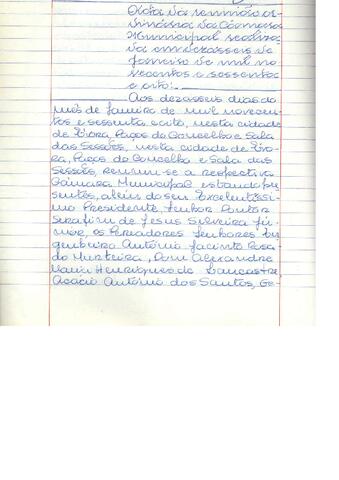 Acta da reunião or-
dinária da Câmara
Municipal realiza-
da em dezasseis de
Janeiro de mil no-
vecentos e sessenta
e oito:
Aos dezasseis dias do
mês de Janeiro de mil novecen-
tos e sessenta e oito, nesta cidade
de Évora, Paços do Concelho e Sala
das Sessões, nesta cidade de Évo-
ra, Paços do Concelho e Sala das
Sessões, reuniu-se a respectiva
Câmara Municipal estando pre-
sentes, além do seu Excelentíssi-
mo Presidente, Senhor Doutor
Serafim de Jesus Silveira Jú-
nior, os Vereadores Senhores En-
genheiro António Jacinto Rosa
do Murteira, Dom Alexandre
Maria Henriques de Lancastre
Acácio António dos Santos, Ge-